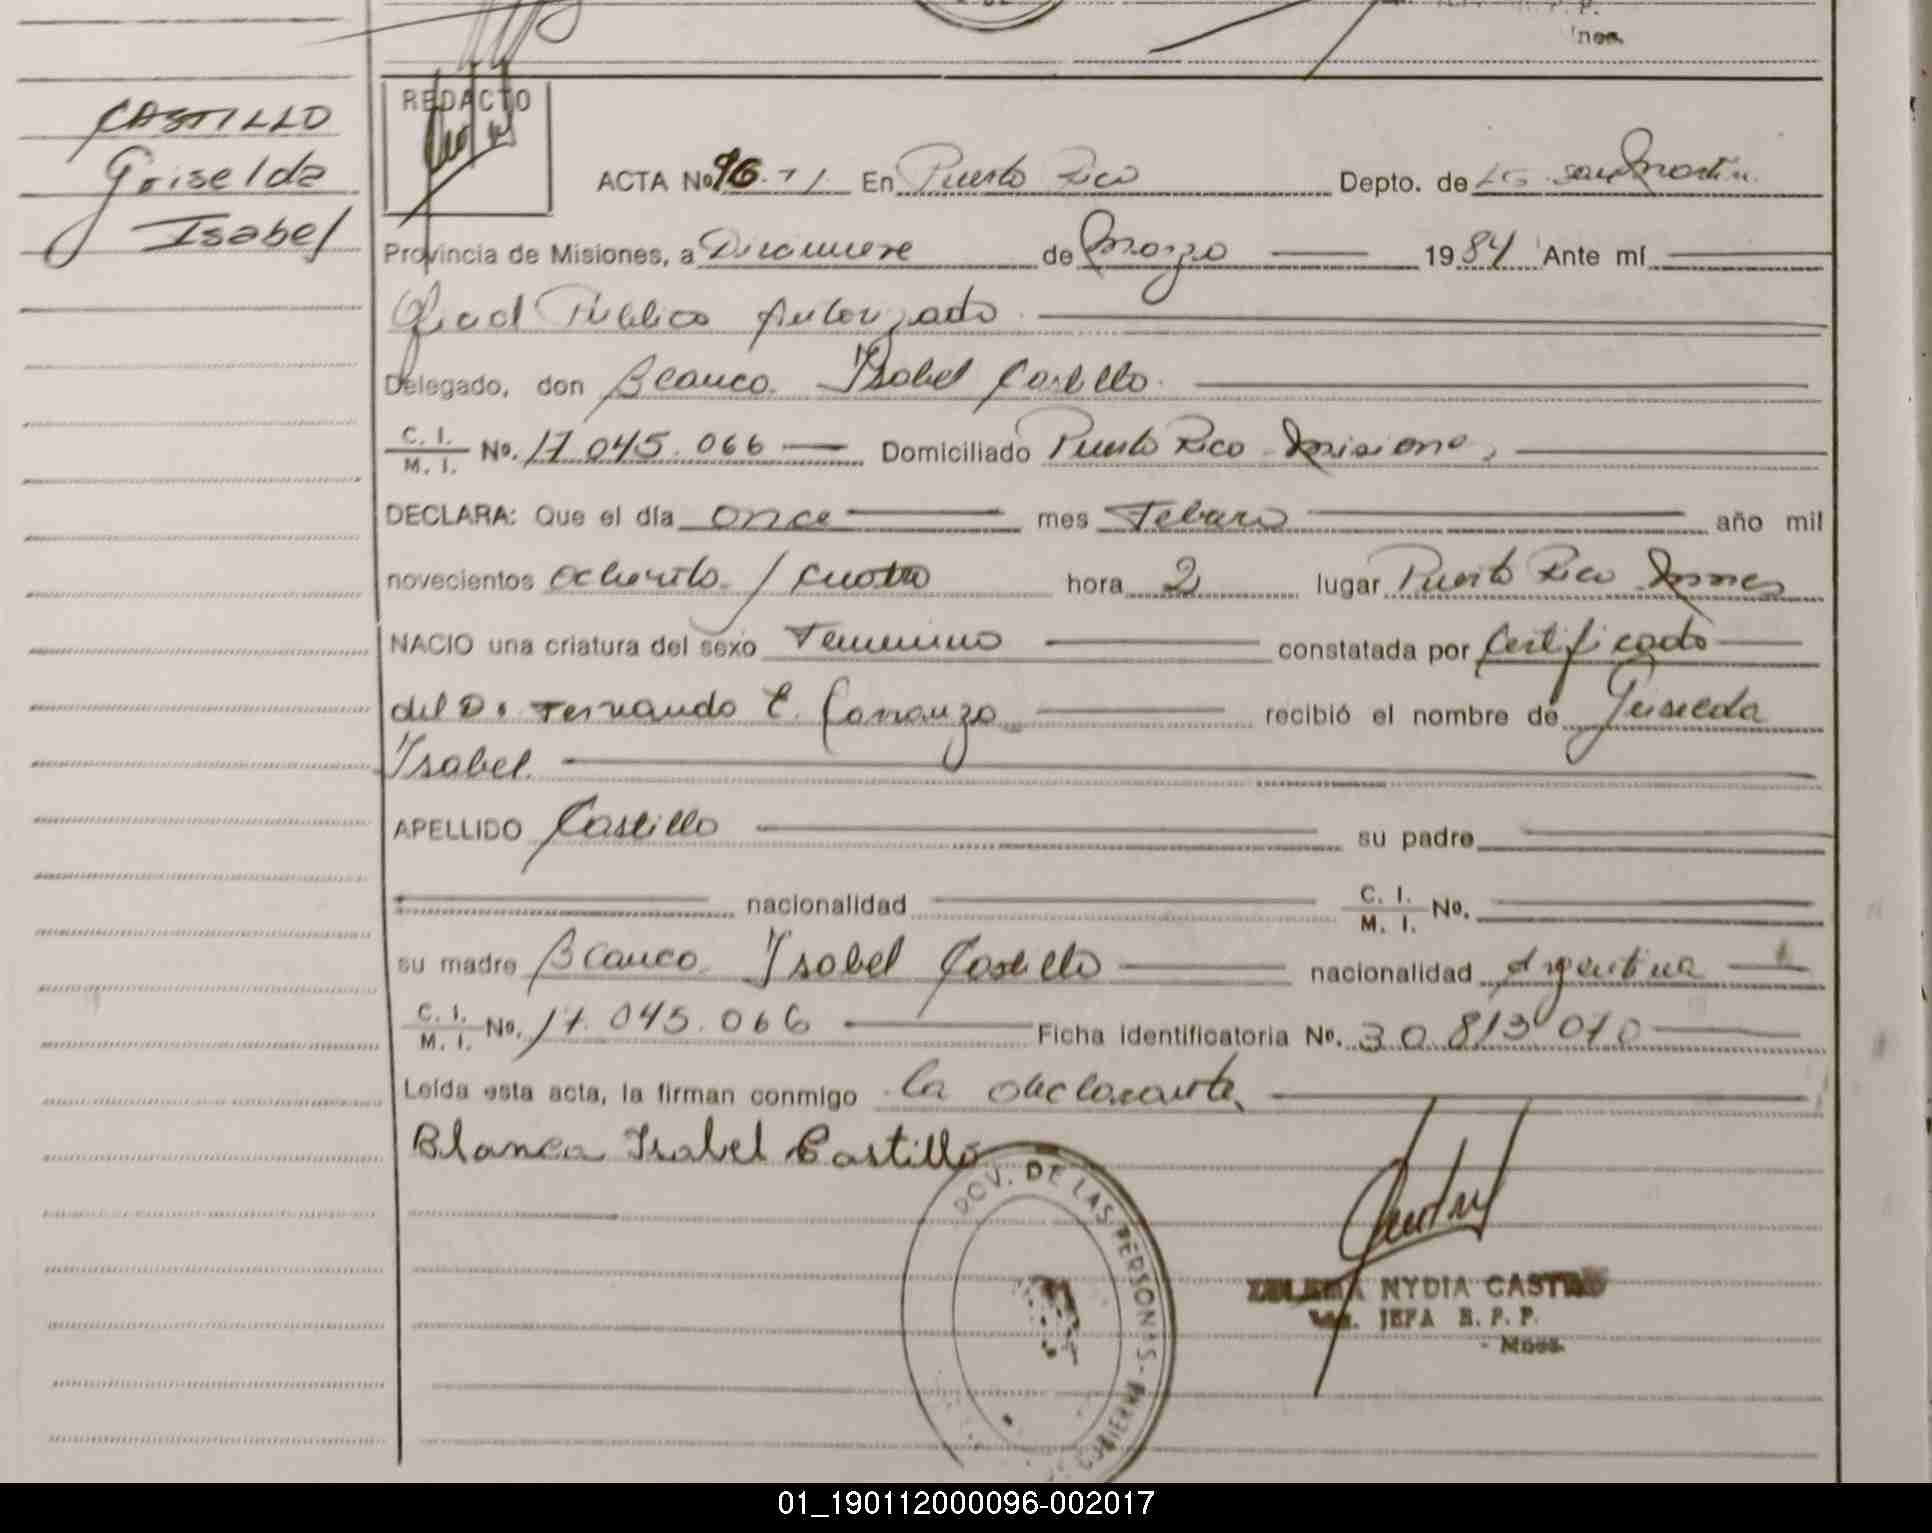 nes.
CASTILLO
Griselda
Isabel
REDACTO
ACTA No 96 - En Puerto Rico Depto. de LG. San Martín
Provincia de Misiones, a Diecinueve de Marzo 1984 Ante mí
Oficial Público Autorizado
Delegado, don Blanca Isabel Castillo
C. I.
M. I. No. 17.045.066 Domiciliado Puerto Rico Misiones,
DECLARA: Que el día once mes Febrero año mil
novecientos ochenta / cuatro hora 2 lugar Puerto Rico Mnes
NACIO una criatura del sexo Femenino constatada por Certificado
del Dr Fernando E. Carranza recibió el nombre de Griselda
Isabel
APELLIDO Castillo su padre
nacionalidad C. I.
M. I. No.
su madre Blanca Isabel Castillo nacionalidad Argentina
C. I.
M. I. No. 17.045.066 Ficha identificatoria No. 30.813.070
Leída esta acta, la firman conmigo la declarante
Blanca Isabel Castillo
DE LAS PERSONAS -
NYDIA CASTRO
JEFA
- Mnes.
01_190112000096-002017